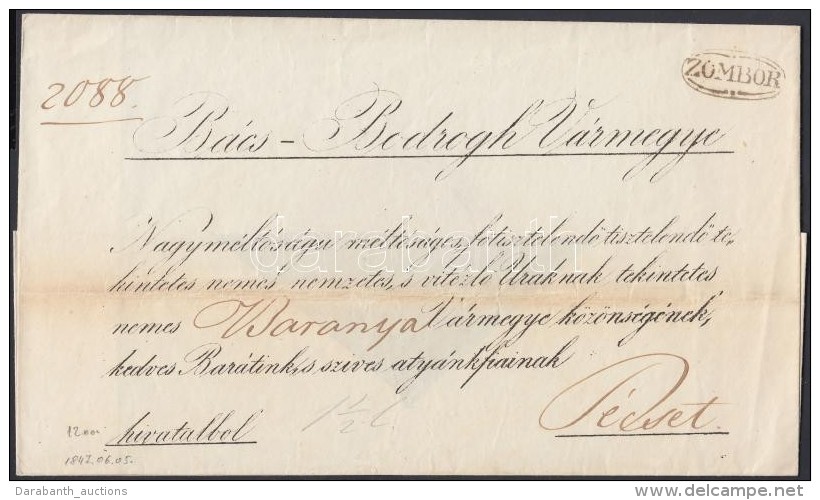 2088.
ZOMBOR
Bács – Bodrogh Vármegye
Nagyméltóságu méltóságos, főtisztelendő tisztelendő te-
kintetes nemes nemzetes, s vitézlő Uraknak tekintetes
nemes Baranya Vármegye közönségének,
kedves Barátink, s szives atyánkfiainak
Pécset.
hivatalbol
1842.06.05.
darabanth
Darabanth_auctions
delcampe.net